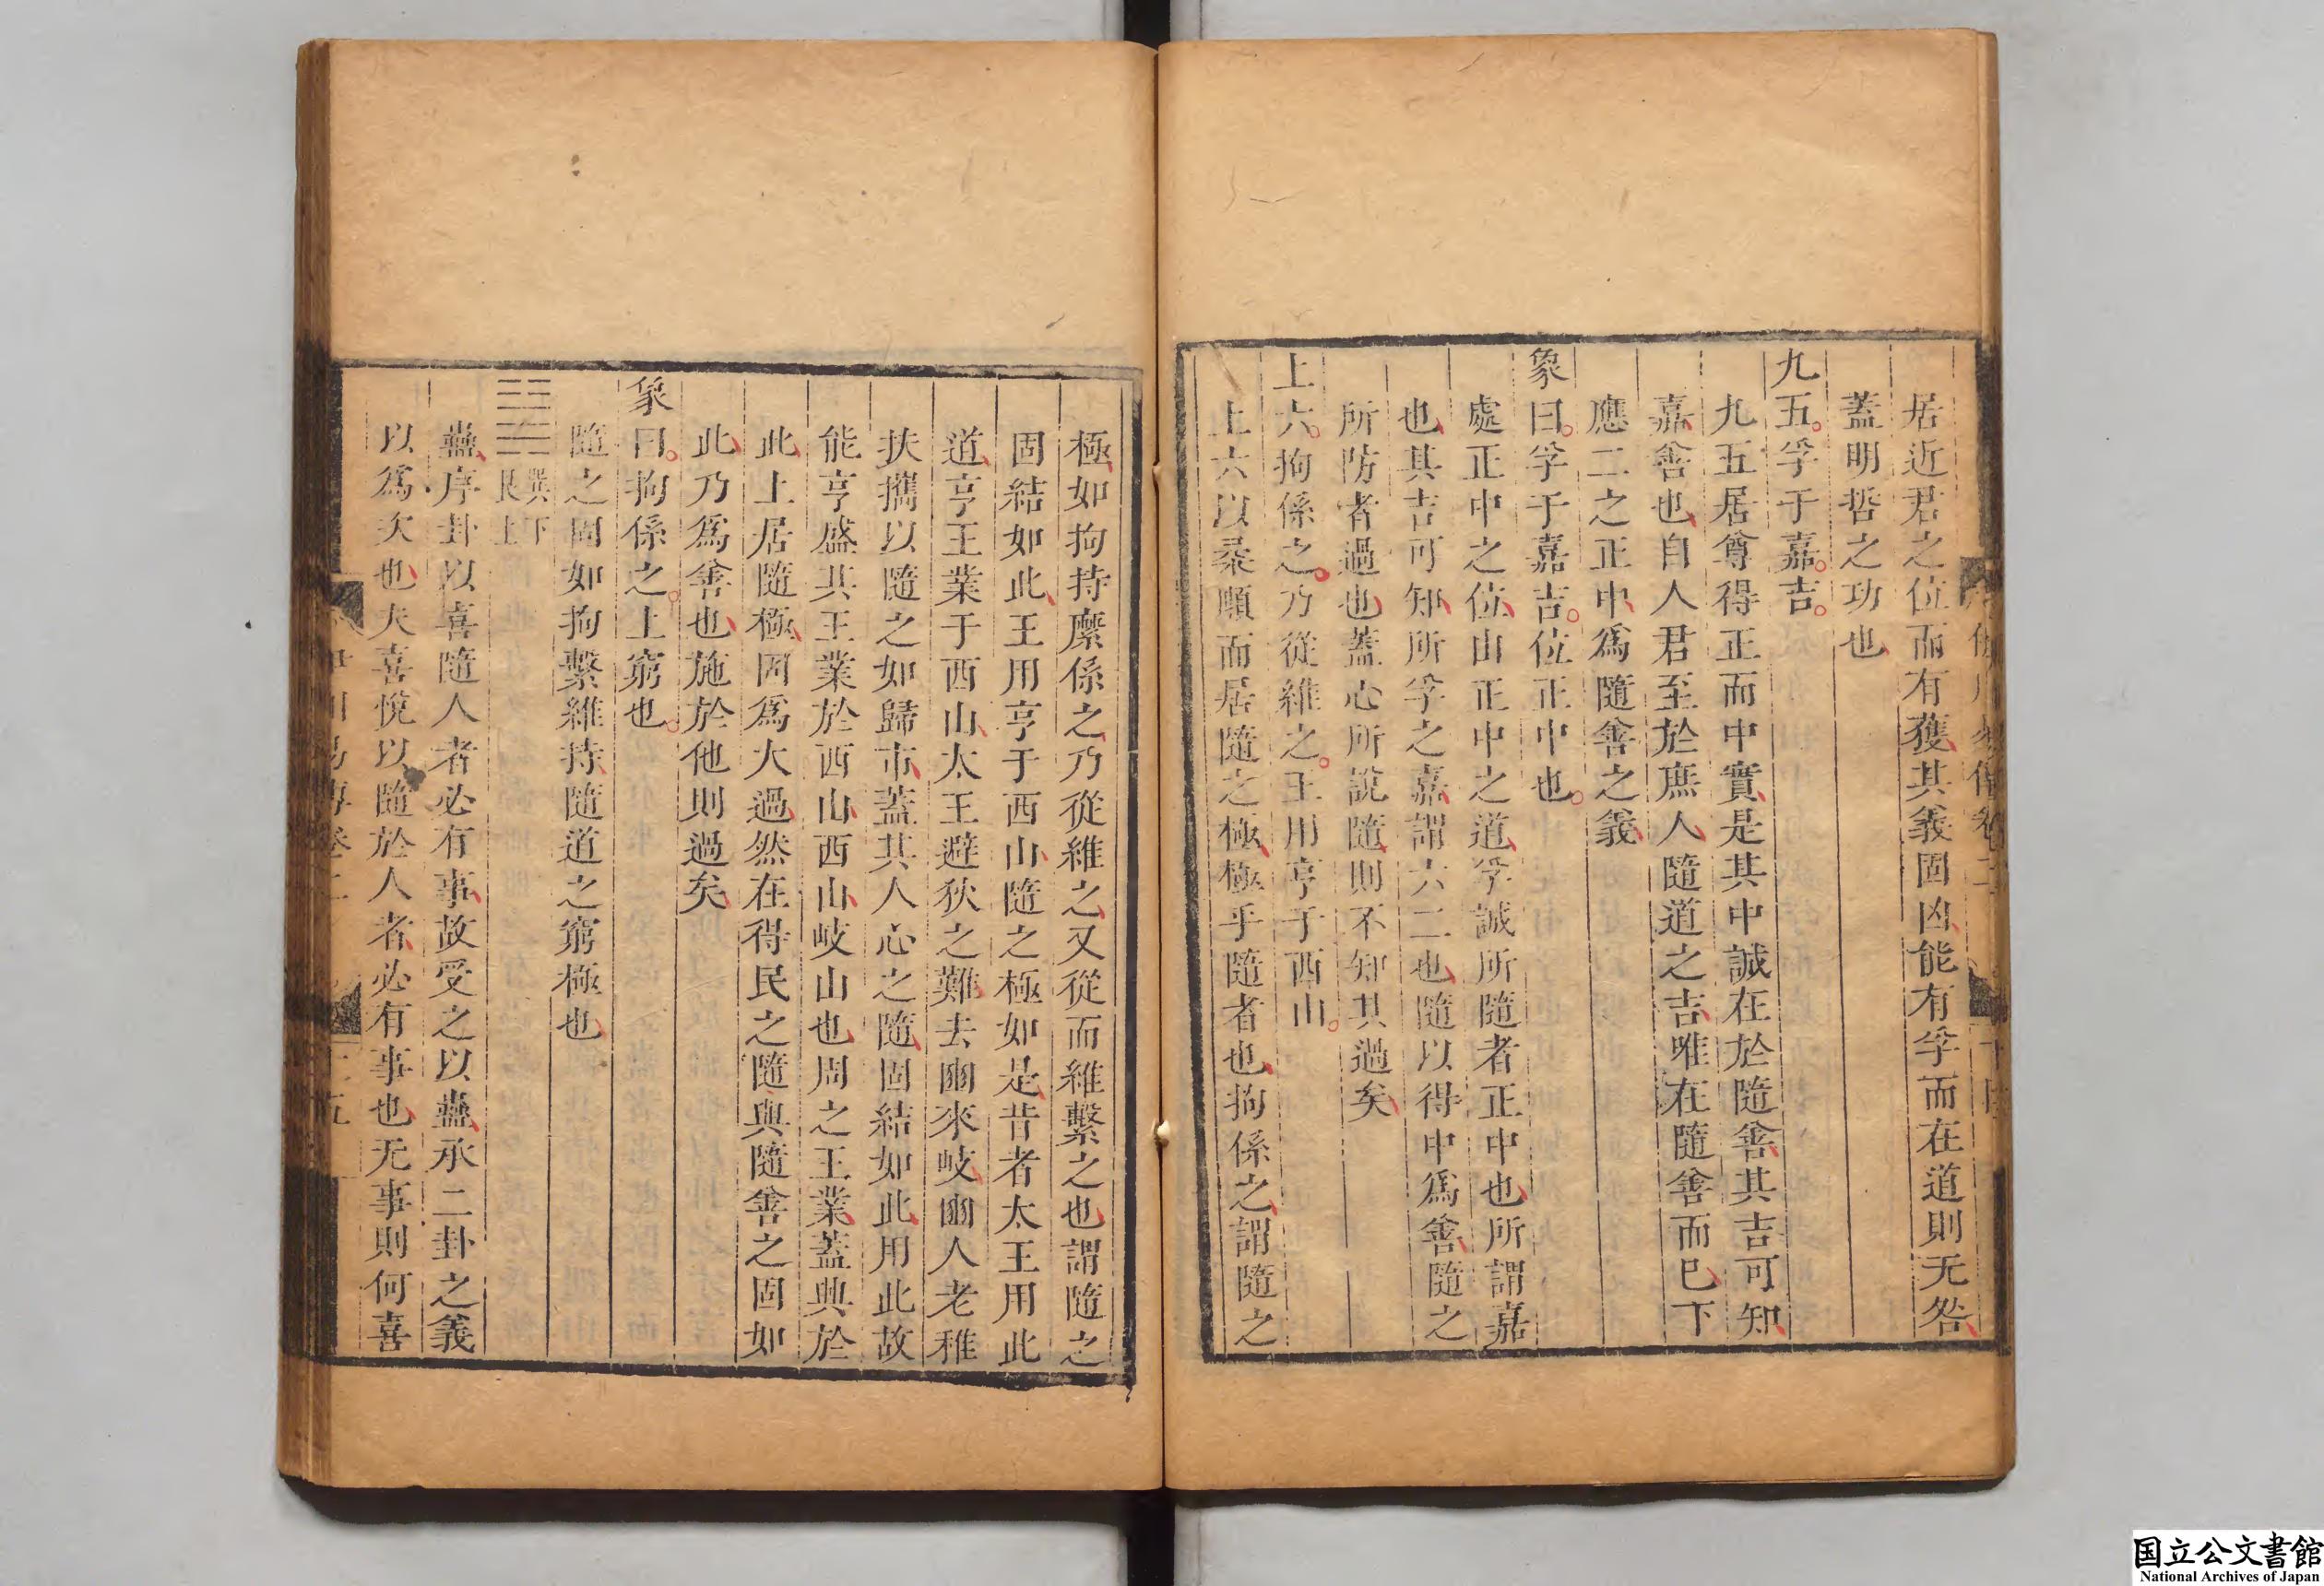 居近君之位而有獲其義固凶能有孚而在道則无咎
蓋明哲之功也
九五孚于嘉吉
九五居尊得正而中實是其中誠在於隨善其吉可知
嘉善也自人君至於庶人隨道之吉唯在隨善而已下
應二之正中爲隨善之義
象曰孚于嘉吉位正中也
處正中之位由正中之道孚誠所隨者正中也所謂嘉
也其吉可知所孚之嘉謂六二也隨以得中爲善隨之
所防者過也蓋心所說隨則不知其過矣
上六拘係之乃從維之王用亨于西山
上六以柔順而居隨之極極乎隨者也拘係之謂隨之
極如拘持縻係之乃從維之又從而維繫之也謂隨之
固結如此王用亨于西山隨之極如是昔者太王用此
道亨王業于西山太王避狄之難去豳來岐豳人老稚
扶攜以隨之如歸市蓋其人心之隨固結如此用此故
能亨盛其王業於西山西山岐山也周之王業蓋興於
此上居隨極固爲大過然在得民之隨與隨善之固如
此乃爲善也施於他則過矣
象曰拘係之上窮也
隨之固如拘繫維持隨道之窮極也
巽下
艮上
蠱序卦以喜隨人者必有事故受之以蠱承二卦之義
以爲次也夫喜悅以隨於人者必有事也无事則何喜
伊川易傳卷二
十五
国立公文書館
National Archives of Japan